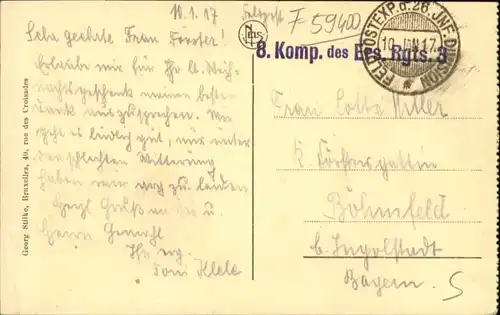 10.1.17
Feldpost
F 59400
Sehr geehrte Frau Förster!
Erlaube mir für Ihr l. Weih-
nachtsgeschenk meinen besten
Dank auszusprechen. Mir
geht es leidlich gut, nur unter
der schlechten Witterung
haben wir arg zu leiden
Herzl. Gruß an Sie u.
Herrn Gemahl
Ihr erg.
Toni
Georg Stilke, Bruxelles, 40, rue des Croisades
FELDPOSTEXP. d. 26. INF. DIVISION
10 JAN 17
8. Komp. des Ers. Rgts. 3
Frau Lotte
K. Försters gattin
Böhmfeld
b. Ingolstadt
Bayern.
S